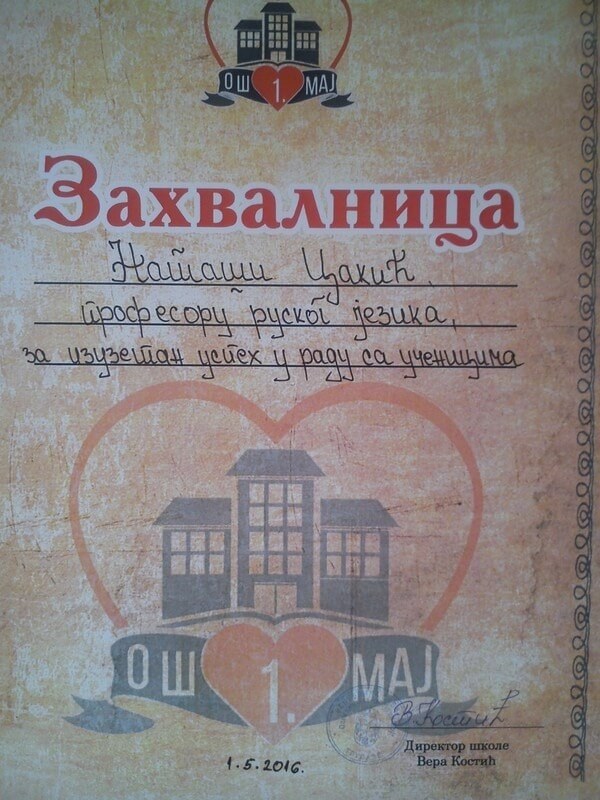 ОШ 1. МАЈ
Захвалница
Наташи Цакић,
професору руског језика,
за изузетан успех у раду са ученицима
ОШ 1. МАЈ
В. Костић
Директор школе
Вера Костић
1.5.2016.